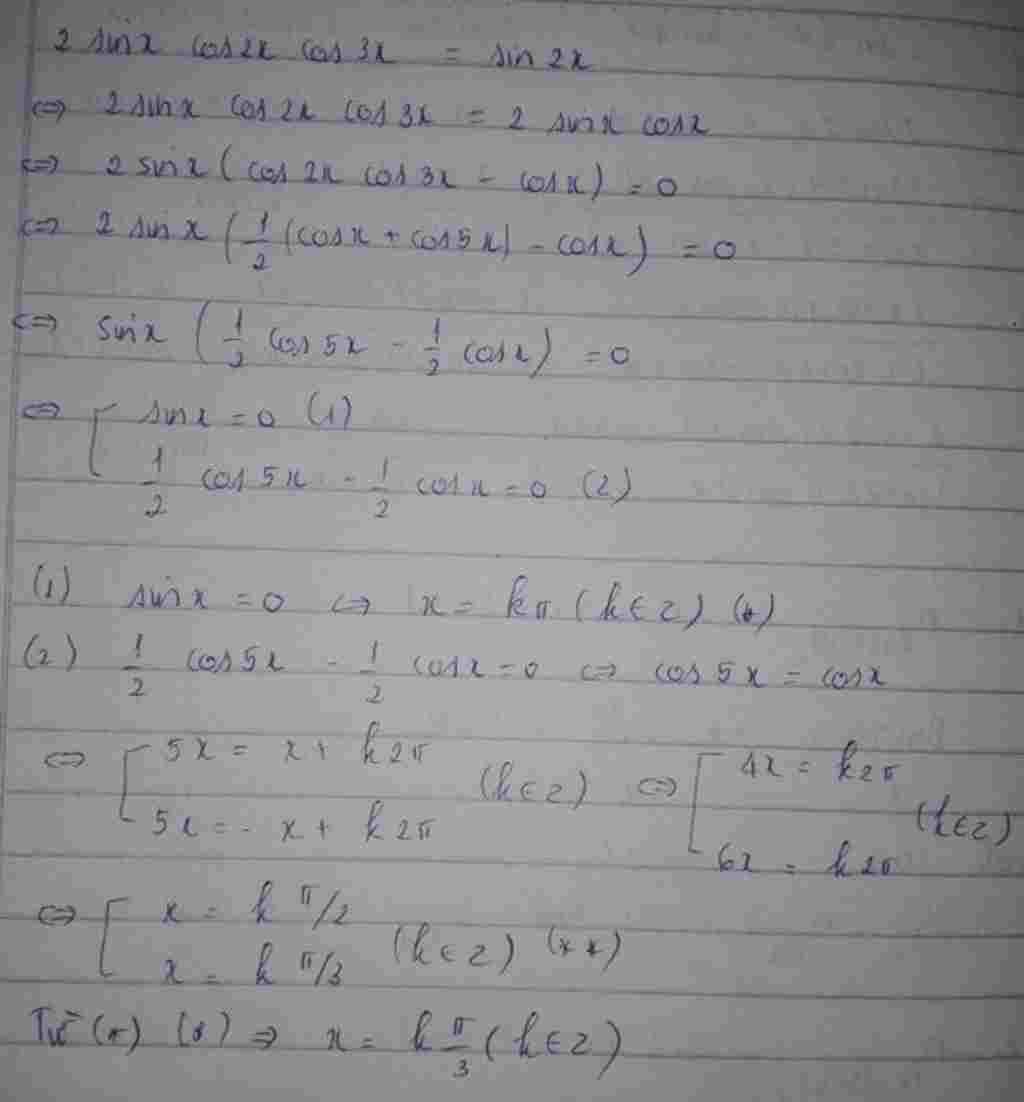 2 sin x cos 2x cos 3x = sin 2x
⇔ 2 sin x cos 2x cos 3x = 2 sin x cos x
⇔ 2 sin x (cos 2x cos 3x - cos x) = 0
⇔ 2 sin x (1/2 (cos x + cos 5x) - cos x) = 0
⇔ sin x (1/2 cos 5x - 1/2 cos x) = 0
⇔ [ sin x = 0 (1)
1/2 cos 5x - 1/2 cos x = 0 (2)
(1) sin x = 0 ⇔ x = kπ (k ∈ Z) (*)
(2) 1/2 cos 5x - 1/2 cos x = 0 ⇔ cos 5x = cos x
⇔ [ 5x = x + k2π (k ∈ Z) ⇔ [ 4x = k2π (k ∈ Z)
5x = - x + k2π 6x = k2π
⇔ [ x = k π/2 (k ∈ Z) (**)
x = k π/3
Từ (*) ⇒ x = k π/3 (k ∈ Z)